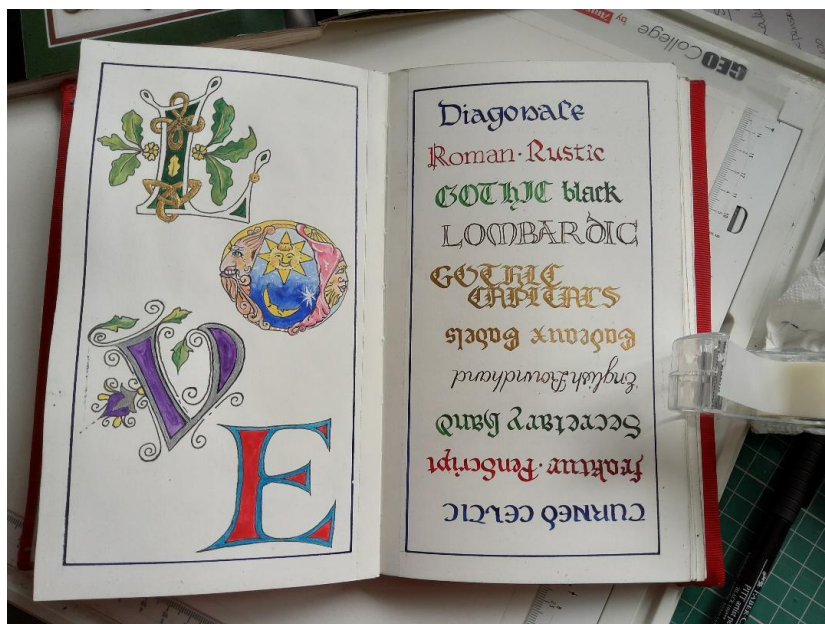 L
O
V
E
Diagonale
Roman·Rustic
GOTHIC black
LOMBARDIC
GOTHIC
CAPITALS
Cadeaux Cadels
English Roundhand
Secretary hand
fraktur·PenScript
TURNED CELTIC
GEOCollege
by
PITT artist pen